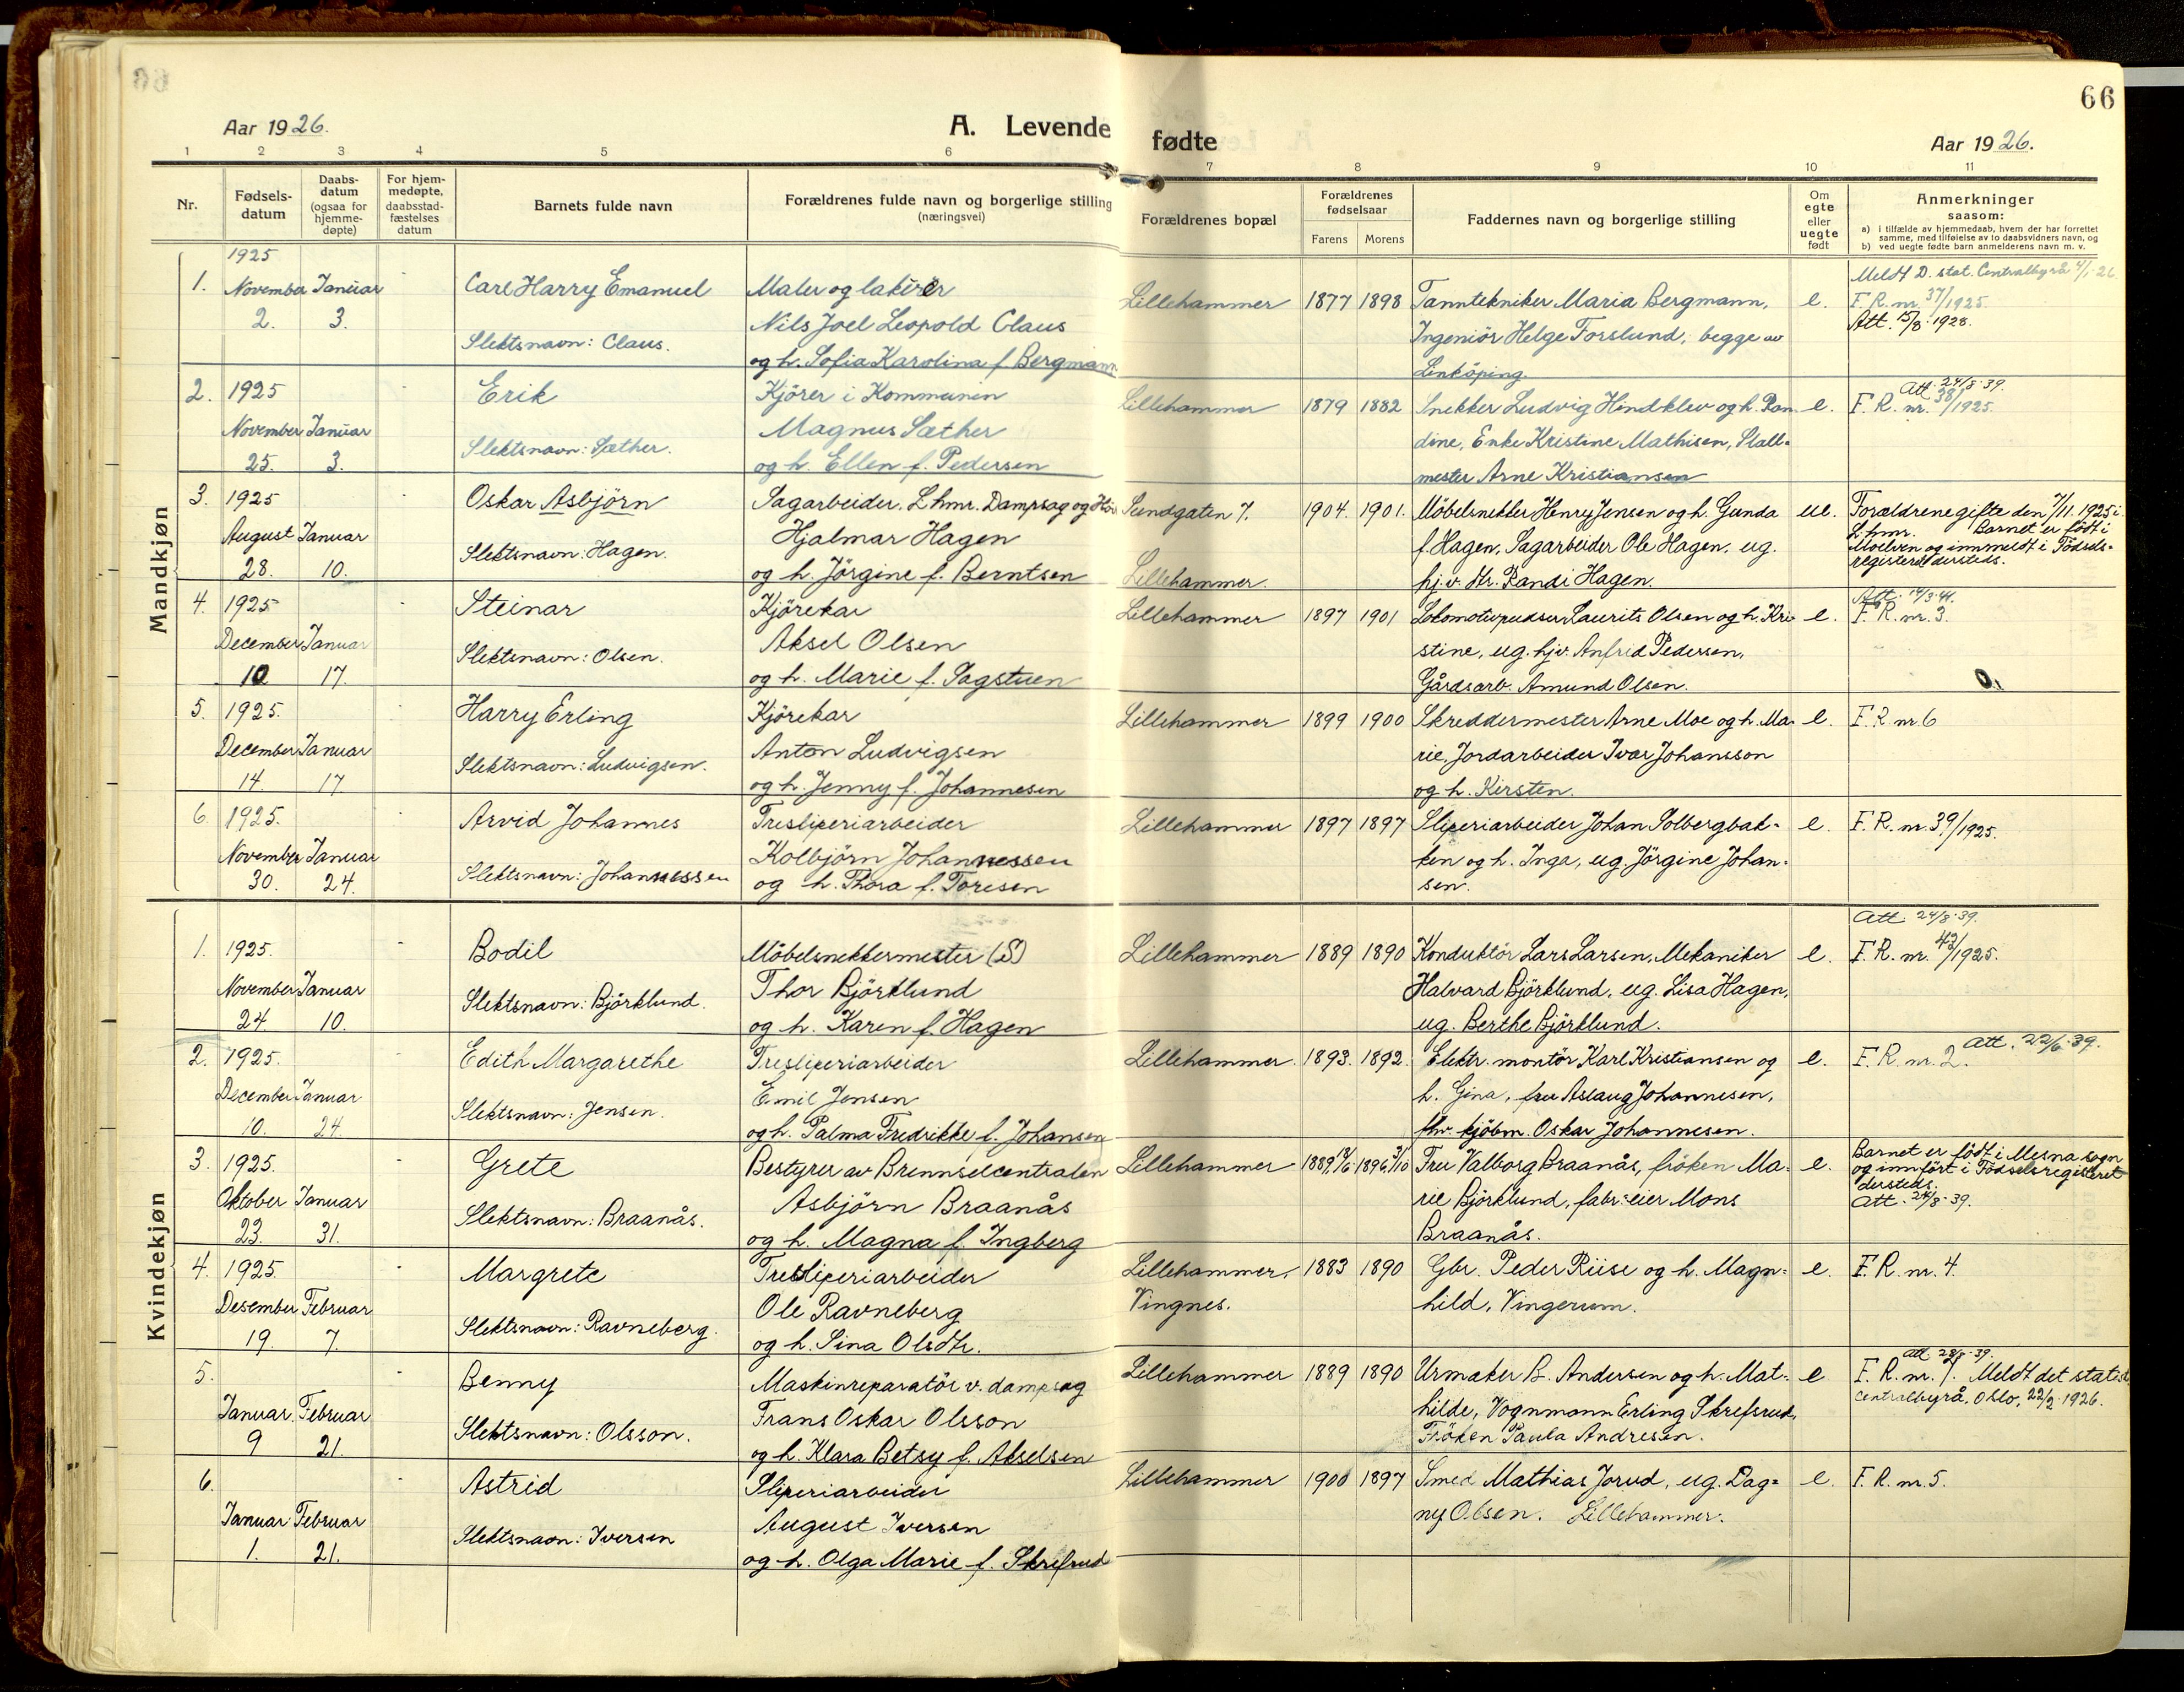 66
Aar 1926.
A. Levende fødte
Aar 1926.
1 2 3 4 5 6 7 8 9 10 11
Nr.
Fødsels-
datum
Daabs-
datum
(ogsaa for
hjemme-
døpte)
For hjem-
medøpte,
daabsstad-
fæstelses
datum
Barnets fulde navn
Forældrenes fulde navn og borgerlige stilling
(næringsvei)
Forældrenes bopæl
Forældrenes
fødselsaar
Farens Morens
Faddernes navn og borgerlige stilling
Om
egte
eller
uegte
født
Anmerkninger
saasom:
a) i tilfælde av hjemmedaab, hvem der har forrettet
samme, med tilføielse av to daabsvidners navn, og
b) ved uegte fødte barn anmelderens navn m. v.
Mandkjøn
1. 1925
November 2. Januar 3.
Carl Harry Emanuel
Slektsnavn: Claus.
Maler og lakirer
Nils Joel Leopold Claus
og h. Sofia Karolina f. Bergmann
Lillehammer 1877 1898
Tanntekniker Maria Bergmann,
Ingeniör Helge Forslund, begge av
Linköping.
e.
Meldt D. stat. Centralbyrå 4/1-26
F. R. nr. 37/1925.
Att. 15/8.1928.
2. 1925
November 25. Januar 3.
Erik
Slektsnavn: Sæther.
Kjörer i Kommunen
Magnus Sæther
og h. Ellen f. Pedersen
Lillehammer 1879 1882
Snekker Ludvig Hindklev og h. Ran-
dine, Enke Kristine Mathisen, Stall-
mester Arne Kristiansen
e.
Att. 24/8-39.
F. R. nr. 38/1925.
3. 1925
August 28. Januar 10.
Oskar Asbjörn
Slektsnavn: Hagen.
Sagarbeider, Lhmr. Dampsag og Höv
Hjalmar Hagen
og h. Jörgine f. Berntsen
Sundgaten 7.
Lillehammer.
1904. 1901.
Möbelsnekker Henry Jensen og h. Gunda
f. Hagen, Sagarbeider Ole Hagen, ug.
hj.v. dtr. Randi Hagen.
ue.
Forældrene gifte den 7/11.1925 i
Lhmr. Barnet er födt i
Moelven og innmeldt i Födsels-
registeret dersteds.
4. 1925
December 10 Januar 17.
Steinar
Slektsnavn: Olsen.
Kjörekar
Aksel Olsen
og h. Marie f. Sagstuen
Lillehammer 1897 1901
Lokomotivpudser Laurits Olsen og h. Kri-
stine, ug. hjv. Anfrid Pedersen,
Gårdsarb. Amund Olsen.
e.
F. R. nr. 3.
5. 1925.
December 14. Januar 17
Harry Erling
Slektsnavn: Ludvigsen.
Kjörekar
Anton Ludvigsen
og h. Jenny f. Johannesen
Lillehammer 1899 1900
Skreddermester Arne Moe og h. Ma-
rie, Jordarbeider Ivar Johansson
og h. Kirsten.
e.
F. R. nr. 6
6. 1925.
November 30. Januar 24.
Arvid Johannes
Slektsnavn: Johannessen
Tresliperiarbeider
Kolbjörn Johannessen
og h. Thora f. Toresen
Lillehammer 1897 1897
Sliperiarbeider Johan Solbergbak-
ken og h. Inga, ug. Jörgine Johan-
sen.
e.
F. R. nr. 39/1925.
Kvindekjøn
1. 1925.
November 24. Januar 10.
Bodil
Slektsnavn: Björklund.
Möbelsnekkermester (S)
Thor Björklund
og h. Karen f. Hagen
Lillehammer 1889 1890
Konduktör Lars Larsen, Mekaniker
Halvard Björklund, ug. Lisa Hagen,
ug. Berthe Björklund.
e.
Att. 24/8-39.
F. R. nr. 42/1925.
2. 1925.
December 10. Januar 24.
Edith Margarethe
Slektsnavn: Jensen.
Tresliperiarbeider
Emil Jensen
og h. Palma Fredrikke f. Johansen
Lillehammer. 1893. 1892.
Elektr. montör Karl Kristiansen og
h. Gina, fru Aslaug Johannesen,
fhv. kjöbm. Oskar Johannesen.
e.
Att. 22/6-39.
F. R. nr. 2.
3. 1925.
Oktober 23. Januar 31.
Grete
Slektsnavn: Braanås.
Bestyrer av Brennselcentralen
Asbjörn Braanås
og h. Magna f. Ingberg
Lillehammer 1889 1896
Fru Valborg Braanås, fröken Ma-
rie Björklund, fabr.eier Mons
Braanås.
e.
Barnet er födt i Mesna sogn
og innfört i Födselsregisteret
dersteds.
Att. 24/8-39.
4. 1925.
Desember 19. Februar 7.
Margrete
Slektsnavn: Ravneberg.
Tresliperiarbeider
Ole Ravneberg
og h. Sina Olsdtr.
Lillehammer,
Vingnes.
1883 1890
Gbr. Peder Riise og h. Magn-
hild, Vingerum.
e.
F. R. nr. 4.
5.
Januar 9 Februar 21.
Benny
Slektsnavn: Olsson.
Maskinreparatör v. dampsag
Frans Oskar Olsson
og h. Klara Betsy f. Akselsen
Lillehammer 1889 1890
Urmaker B. Andersen og h. Mat-
hilde, Vognmann Erling Skrefsrud,
Fröken Paula Andresen.
e
Att. 28/8-39.
F. R. nr. 7. Meldt det stat.
Centralbyrå, Oslo, 22/2-1926.
6.
Januar 1. Februar 21.
Astrid
Slektsnavn: Iversen
Sliperiarbeider
August Iversen
og h. Olga Marie f. Skrefsrud
Lillehammer 1900 1897
Smed Mathias Jorud, ug. Dag-
ny Olsen. Lillehammer.
e.
F. R. nr. 5.